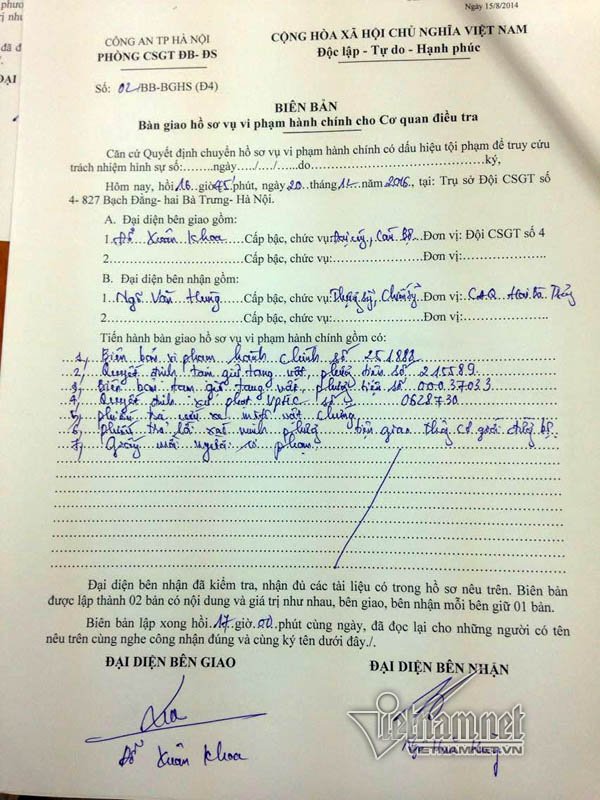 Ngày 15/8/2014
CÔNG AN TP HÀ NỘI
PHÒNG CSGT ĐB- ĐS
CỘNG HÒA XÃ HỘI CHỦ NGHĨA VIỆT NAM
Độc lập - Tự do - Hạnh phúc
Số: 02/BB-BGHS (Đ4)
BIÊN BẢN
Bàn giao hồ sơ vụ vi phạm hành chính cho Cơ quan điều tra
Căn cứ Quyết định chuyển hồ sơ vụ vi phạm hành chính có dấu hiệu tội phạm để truy cứu
trách nhiệm hình sự số:............ngày...../..../.....do..............................................ký,
Hôm nay, hồi 16 giờ 45 phút, ngày 20 tháng 12 năm 2016, tại: Trụ sở Đội CSGT số
4- 827 Bạch Đằng- hai Bà Trưng- Hà Nội.
A. Đại diện bên giao gồm:
1. Đỗ Xuân Khoa Cấp bậc, chức vụ: Đại úy, Cán Bộ Đơn vị: Đội CSGT số 4
2. Cấp bậc, chức vụ: Đơn vị:
B. Đại diện bên nhận gồm:
1. Ngô Văn Hưng Cấp bậc, chức vụ: Đơn vị: CAQ Hai Bà Trưng
2. Cấp bậc, chức vụ: Đơn vị:
Tiến hành bàn giao hồ sơ vụ vi phạm hành chính gồm có:
1, Biên bản vi phạm hành chính số 251888
2, Quyết định tạm giữ tang vật, phương tiện số 215589
3, Biên bản tạm giữ tang vật, phương tiện số 00037033
4, Quyết định xử phạt VPHC số 0628730
5,
6,
7, người vi phạm
Đại diện bên nhận đã kiểm tra, nhận đủ các tài liệu có trong hồ sơ nêu trên. Biên bản
được lập thành 02 bản có nội dung và giá trị như nhau, bên giao, bên nhận mỗi bên giữ 01 bản.
Biên bản lập xong hồi 17 giờ 00 phút cùng ngày, đã đọc lại cho những người có tên
nêu trên cùng nghe công nhận đúng và cùng ký tên dưới đây./.
ĐẠI DIỆN BÊN GIAO
ĐẠI DIỆN BÊN NHẬN
Đỗ Xuân Khoa
vietnamnet
VIETNAMNET.VN